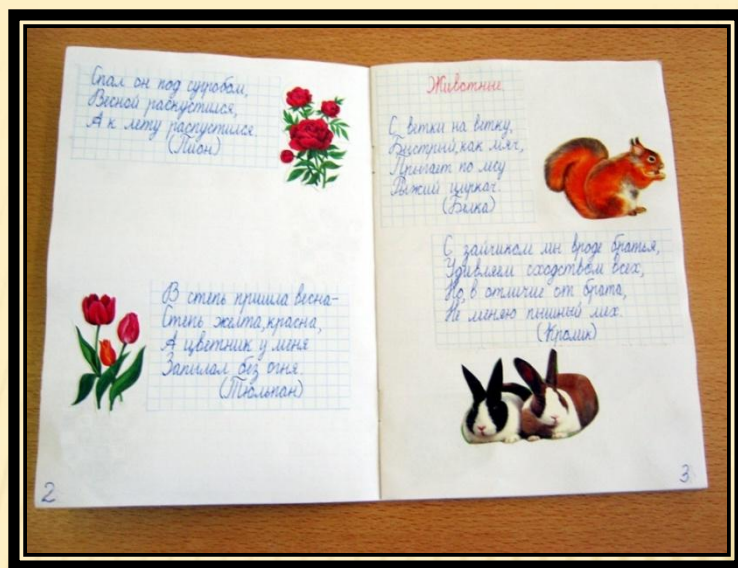 Спал он под сугробом,
Весной раскустился,
А к лету распустился.
(Пион)
В степь пришла весна-
Степь желта, красна,
А цветник у меня
Запылал без огня.
(Тюльпан)
2
Животные
С ветки на ветку,
Быстрый, как мяч,
Прыгает по лесу
Рыжий циркач.
(Белка)
С зайчиком мы вроде братья,
Удивляем сходством всех,
Но, в отличие от брата,
Не меняю пышный мех.
(Кролик)
3